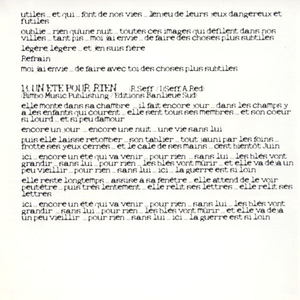 utiles .. et qui .. font de nos vies .. le lieu de leurs jeux dangereux et
futiles
oublie .. rien qu'une nuit .. toutes ces images qui défilent dans nos
villes .. tant pis .. moi j'ai envie .. de faire des choses plus subtiles
légère légère .. et j'en suis fière
Refrain
moi j'ai envie .. de faire avec toi des choses plus subtiles
14. UN ETE POUR RIEN .. R.Seff - J.Seff A.Red
Bimbo Music Publishing - Editions Banlieue Sud
elle monte dans sa chambre .. il fait encore jour .. dans les champs y
a les enfants qui courent .. elle sent tous ses membres .. et son coeur
si lourd .. et si peu d'amour
encore un jour .. encore une nuit .. une vie sans lui
puis elle laisse retomber .. son tablier .. tout jauni par les foins ..
frotte ses yeux cernés .. et le cale de ses mains .. c'est bientôt Juin
ici .. encore un été qui va venir .. pour rien .. sans lui .. les blés vont
grandir .. sans lui .. pour rien .. les blés vont mûrir .. et elle va déjà un
peu vieillir .. pour rien .. sans lui .. ici .. la guerre est si loin
elle reste longtemps .. assise à sa fenêtre .. elle attend de le voir
peut-être .. puis très lentement .. elle relit ses lettres .. elle relit ses
lettres
ici .. encore un été qui va venir .. pour rien .. sans lui .. les blés vont
grandir .. sans lui .. pour rien .. les blés vont mûrir .. et elle va déjà
un peu vieillir .. pour rien .. sans lui .. ici .. la guerre est si loin